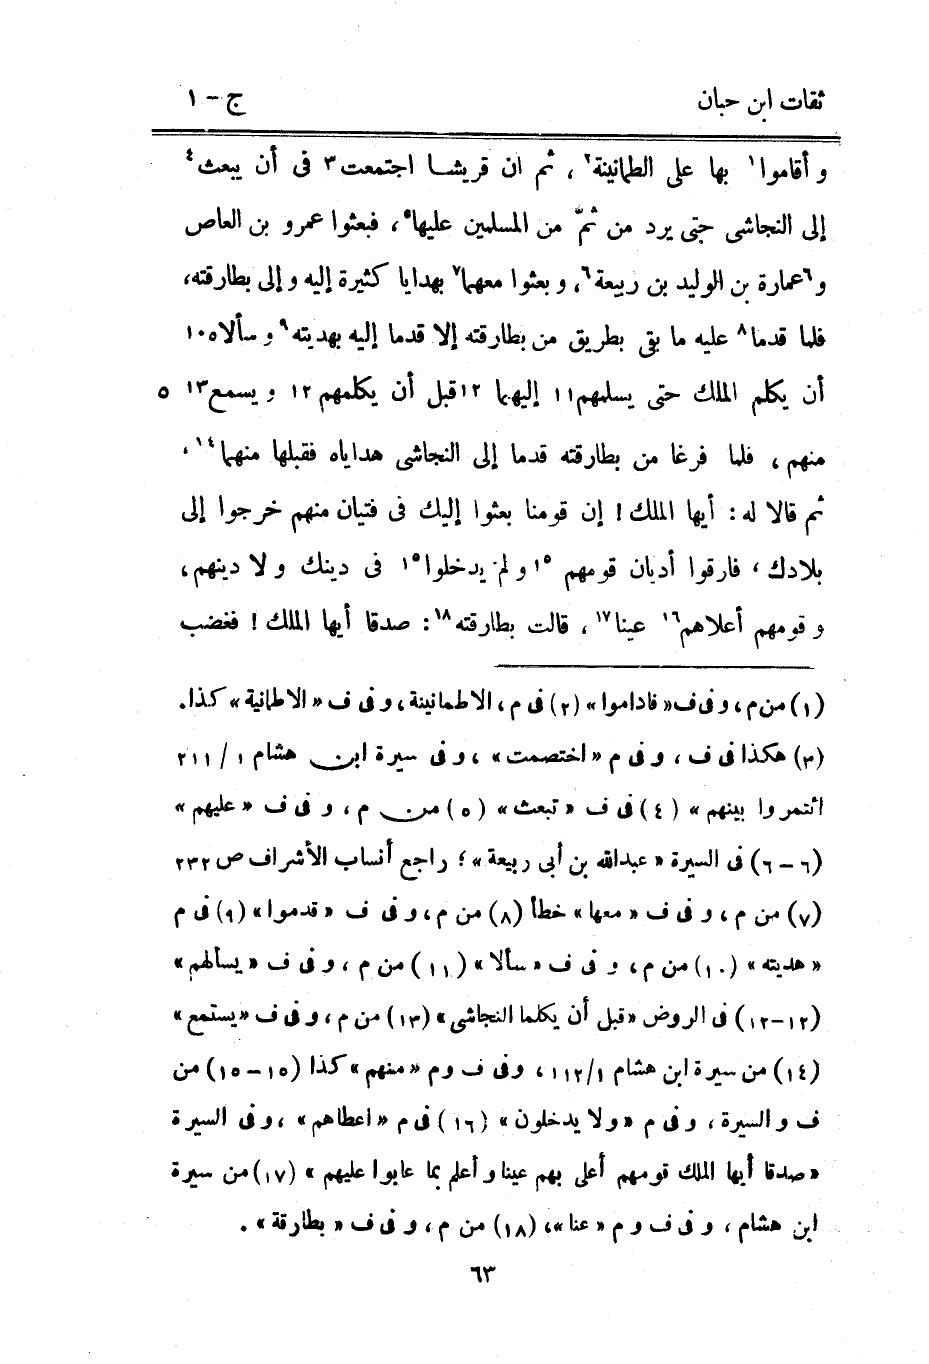 ثقات ابن حبان ج - ١
و أقاموا١ بها على الطمانينة٢ ، ثم ان قريشا اجتمعت٣ فى أن يبعث٤
إلى النجاشى حتى يرد من ثمّ من المسلمين عليها٥ ، فبعثوا عمرو بن العاص
و٦عمارة بن الوليد بن ربيعة٦ ، و بعثوا معهما٧ بهدايا كثيرة إليه و إلى بطارقته،
فلما قدما٨ عليه ما بقى بطريق من بطارقته إلا قدما إليه بهديته٩ و سألاه١٠
أن يكلم الملك حتى يسلمهم١١ إليهما ١٢قبل أن يكلمهم١٢ و يسمع١٣ ٥
منهم ، فلما فرغا من بطارقته قدما إلى النجاشى هداياه فقبلها منهما١٤ ،
ثم قالا له : أيها الملك ! إن قومنا بعثوا إليك فى فتيان منهم خرجوا إلى
بلادك ، فارقوا أديان قومهم ١٥ و لم يدخلوا١٥ فى دينك و لا دينهم ،
و قومهم أعلاهم١٦ عينا١٧ ، قالت بطارقته١٨ : صدقا أيها الملك ! فغضب
(١) من م ، و فى ف « فاداموا » (٢) فى م ، الاطمانينة ، و فى ف « الاطانية » كذا .
(٣) هكذا فى ف ، و فى م « اختصمت » ، و فى سيرة ابن هشام ١ / ٢١١
ائتمروا بينهم » (٤) فى ف « تبعث » (٥) من م ، و فى ف « عليهم »
(٦ – ٦) فى السيرة « عبدالله بن أبى ربيعة » ؛ راجع أنساب الأشراف ص ٢٣٢
(٧) من م ، و فى ف « معها » خطأ (٨) من م ، و فى ف « قدموا » (٩) فى م
« هديته » (١٠) من م ، و فى ف « سألا » (١١) من م ، و فى ف « يسألهم »
(١٢-١٢) فى الروض « قبل أن يكلما النجاشى » (١٣) من م ، و فى ف « يستمع »
(١٤) من سيرة ابن هشام ١١٢/١ ، و فى ف و م « منهم » كذا (١٥ – ١٥) من
ف و السيرة ، و فى م « ولا يدخلون » (١٦) فى م « اعطاهم » ، و فى السيرة
« صدقا أيها الملك قومهم أعلى بهم عينا و أعلم بما عابوا عليهم » (١٧) من سيرة
ابن هشام ، و فى ف و م « عنا » ، (١٨) من م ، و فى ف « بطارقة » .
٦٣